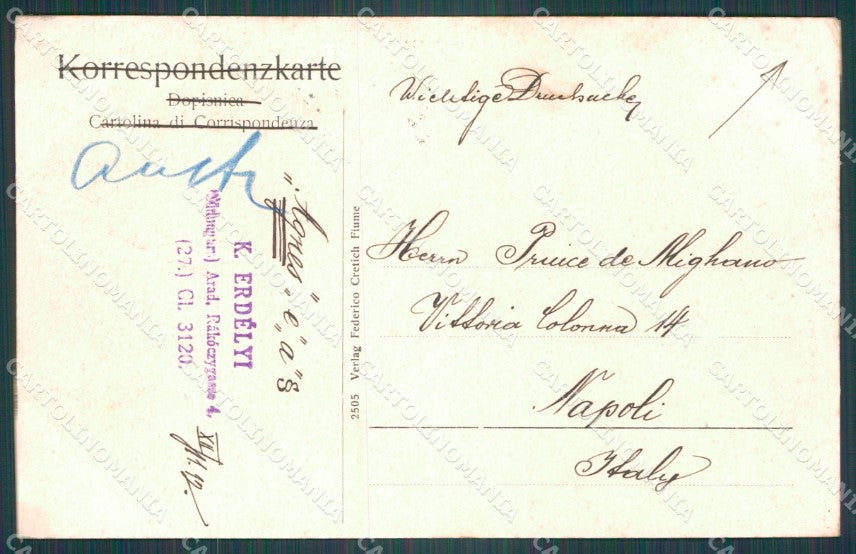 Korrespondenzkarte
Dopisnica
Cartolina di Corrispondenza
Wichtige Drucksache
Herrn Prince de Mighano
Vittoria Colonna 14
Napoli
Italy
2505 Verlag Federico Cretich Fiume
"Agnes"
K. ERDÉLYI
Arad, Rákóczygasse 4.
(27.) Cl. 3120.
CARTOLINOMANIA